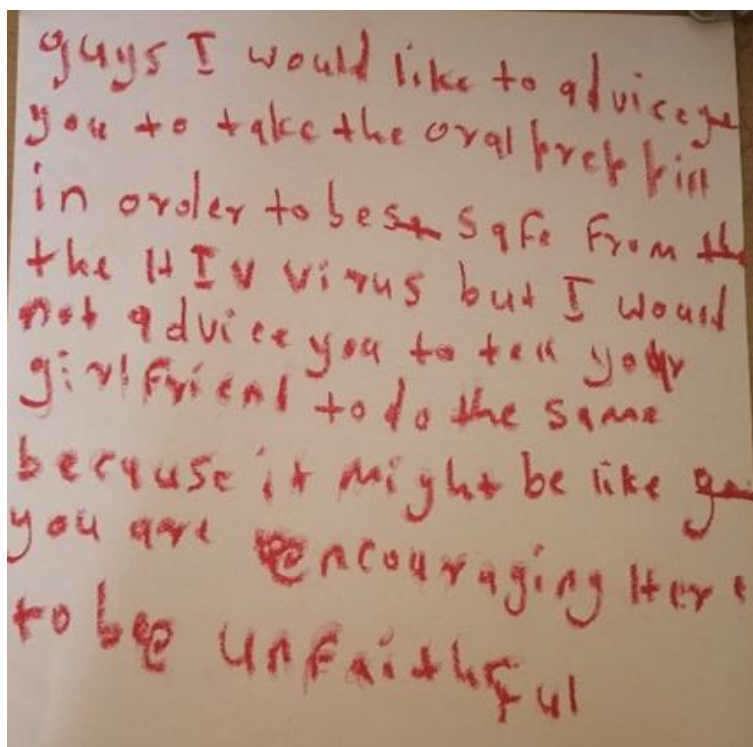 guys I would like to advice
you to take the oral prep pill
in order to be safe from
the HIV virus but I would
not advice you to tell your
girlfriend to do the same
because it might be like
you are encouraging Her
to be unfaithful